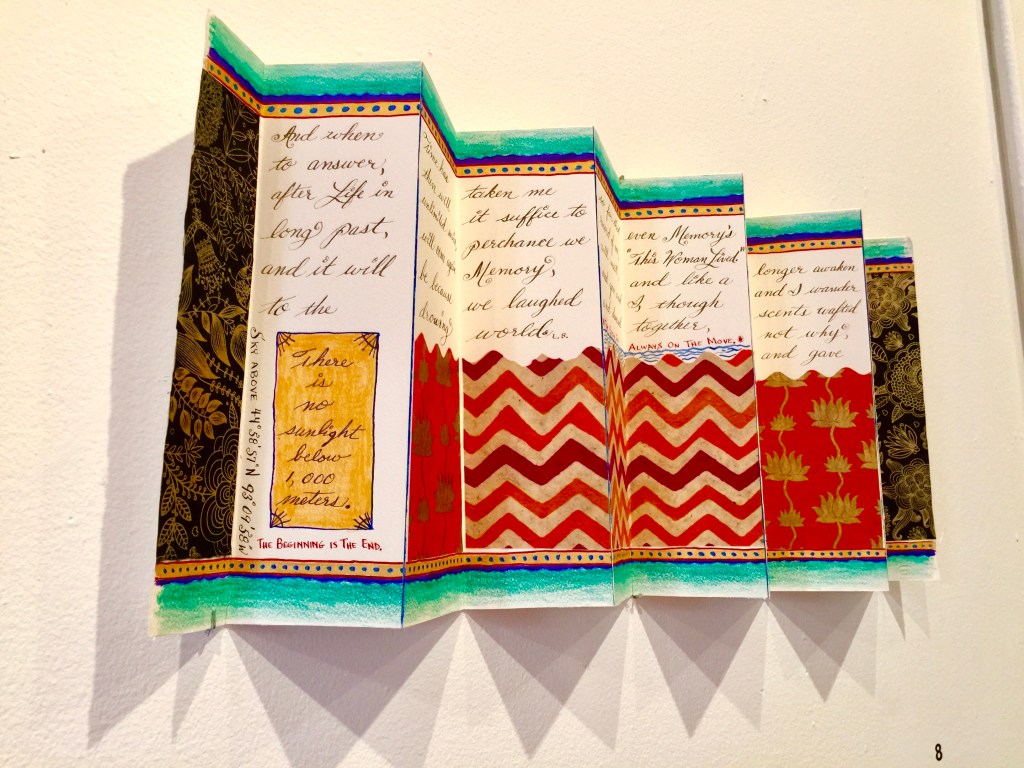 And when
to answer,
after Life in
long past,
and it will
to the
There
is
no
sunlight
below
1,000
meters.
THE BEGINNING IS THE END.
SKY ABOVE 44° 58' 57" N 93° 09' 58 W
there will
will come again
be because
drowning
taken me
it suffice to
perchance we
Memory,
we laughed
worlds. L.B.
even Memory's
"This Woman Lived"
and like a
I, though
together,
ALWAYS ON THE MOVE.*
longer awaken
and I wander
scents wafted
not why,
and gave
8